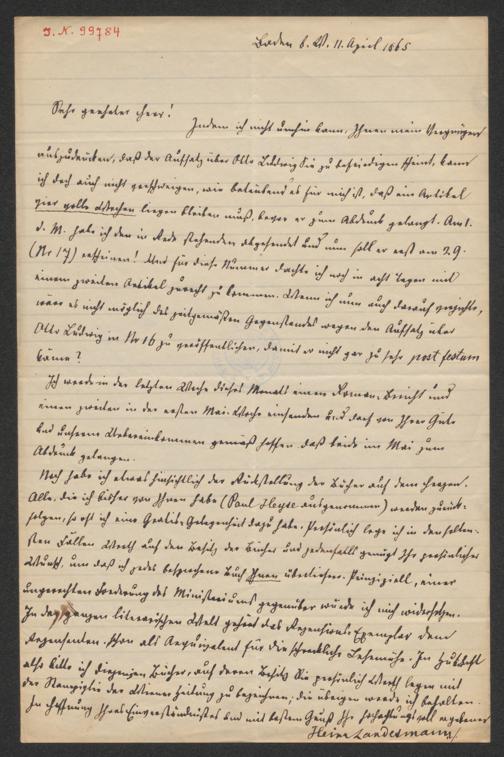 J. N. 99784
Baden b. W. 11. April 1865
Sehr geehrter Herr!
Indem ich nicht umhin kann, Ihnen mein Vergnügen
auszudrücken, daß der Aufsatz über Otto Ludwig Sie zu befriedigen scheint, kann
ich doch auch nicht verschweigen, wie betrübend es für mich ist, daß ein Artikel
vier volle Wochen liegen bleiben muß, bevor er zum Abdruck gelangt. Am 1.
d. M. habe ich den in Rede stehenden abgesendet und nun soll er erst am 29.
(Nr 17) erscheinen! Und für diese Nummer dachte ich noch in acht Tagen mit
einem zweiten Artikel zurecht zu kommen. Wenn ich nun auch darauf verzichte,
wäre es nicht möglich des zeitgemäßen Gegenstandes wegen den Aufsatz über
Otto Ludwig in Nr 16 zu veröffentlichen, damit er nicht gar zu sehr post festum
käme?
Ich werde in der letzten Woche dieses Monats einen Roman-Bericht und
einen zweiten in der ersten Mai-Woche einsenden und darf von Ihrer Güte
und unserem Uebereinkommen gemäß hoffen daß beide im Mai zum
Abdruck gelangen.
Noch habe ich etwas hinsichtlich der Rückstellung der Bücher auf dem Herzen.
Alle, die ich bisher von Ihnen habe (Paul Heyse ausgenommen) werden zurück-
folgen, so oft ich eine Gratis-Gelegenheit dazu habe. Persönlich lege ich in den selten-
sten Fällen Werth auf den Besitz der Bücher und jedenfalls genügt Ihr persönlicher
Wunsch, um daß ich jedes besprochene Buch Ihnen überliefere. Prinzipiell, einer
ungerechten Forderung des Ministeriums gegenüber würde ich mich widersetzen.
In der ganzen literarischen Welt gehört das Rezensions-Exemplar dem
Rezensenten schon als Aequivalent für die schreckliche Lesemühe. In Zukunft
also bitte ich diejenigen Bücher, auf deren Besitz Sie persönlich Werth legen mit
der Stampiglie der Wiener Zeitung zu bezeichnen, die übrigen werde ich behalten.
In Hoffnung Ihres Einverständnisses und mit bestem Gruß Ihr hochachtungsvoll ergebener
Heinr Landesmann